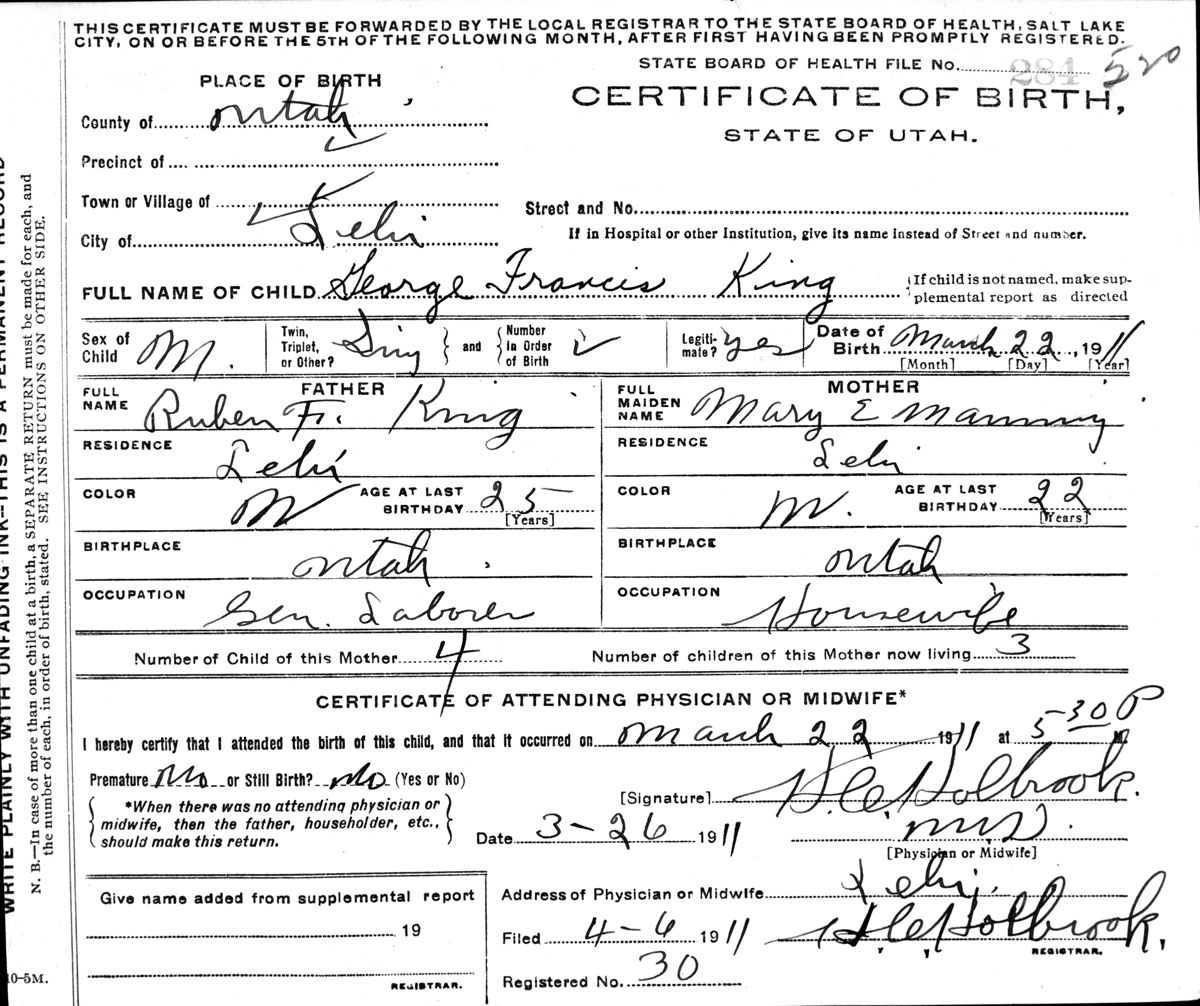 THIS CERTIFICATE MUST BE FORWARDED BY THE LOCAL REGISTRAR TO THE STATE BOARD OF HEALTH, SALT LAKE
CITY, ON OR BEFORE THE 5TH OF THE FOLLOWING MONTH, AFTER FIRST HAVING BEEN PROMPTLY REGISTERED.
STATE BOARD OF HEALTH FILE No. 284 520
PLACE OF BIRTH
CERTIFICATE OF BIRTH,
STATE OF UTAH.
County of Utah
Precinct of
Town or Village of
Street and No.
City of Lehi
If in Hospital or other Institution, give its name instead of Street and number.
FULL NAME OF CHILD George Francis King
If child is not named, make sup-
plemental report as directed
Sex of Child M.
Twin, Triplet, or Other? Sing and Number in Order of Birth
Legiti- mate? Yes
Date of Birth March 22, 1911
[Month] [Day] [Year]
FATHER
FULL NAME Ruben Fr. King
RESIDENCE Lehi
COLOR W AGE AT LAST BIRTHDAY 25
[Years]
BIRTHPLACE Utah
OCCUPATION Gen. Laborer
MOTHER
FULL MAIDEN NAME Mary E Manning
RESIDENCE Lehi
COLOR W. AGE AT LAST BIRTHDAY 22
[Years]
BIRTHPLACE Utah
OCCUPATION Housewife
Number of Child of this Mother 4 Number of children of this Mother now living 3
CERTIFICATE OF ATTENDING PHYSICIAN OR MIDWIFE*
I hereby certify that I attended the birth of this child, and that it occurred on March 22 1911 at 5 30 P M
Premature No or Still Birth? No (Yes or No)
*When there was no attending physician or
midwife, then the father, householder, etc.,
should make this return.
[Signature] Holbrook.
Date 3-26 1911 M.D.
[Physician or Midwife]
Give name added from supplemental report
19
REGISTRAR.
Address of Physician or Midwife Lehi.
Filed 4-6 1911 Holbrook,
REGISTRAR.
Registered No. 30
10-5M.
WRITE PLAINLY WITH UNFADING INK--THIS IS A PERMANENT RECORD
N. B.—In case of more than one child at a birth, a SEPARATE RETURN must be made for each, and
the number of each, in order of birth, stated. SEE INSTRUCTIONS ON OTHER SIDE.